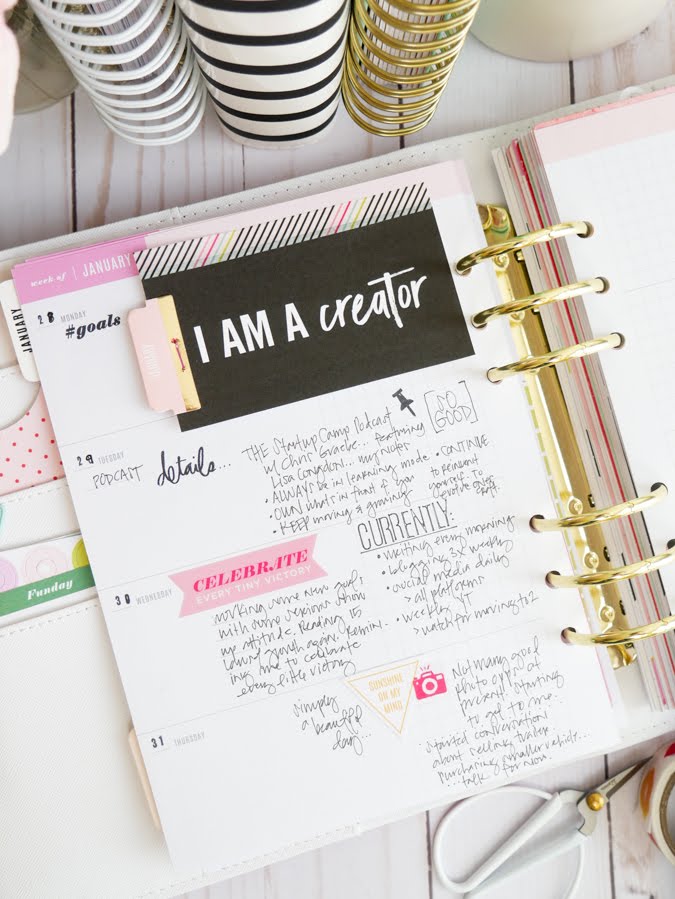 week of | JANUARY
I AM A creator
28 MONDAY
#goals
JANUARY
JANUARY
29 TUESDAY
PODCAST details...
THE Startup Camp Podcast
w/ Chris ... featuring
Lisa Congdon... my notes
• ALWAYS be in learning mode
• OWN what's in front of you
• KEEP moving & growing
SO GOOD!
• CONTINUE
to reinvent
yourself to
evolve
CURRENTLY:
• writing every morning
• blogging 3x weekly
• social media daily
> all platforms
• weekly YT
> watch for moving to 2
30 WEDNESDAY
CELEBRATE
EVERY TINY VICTORY
working some new goals
with some serious
attitude. Reading 15
again.
ing me to celebrate
every little victory
Fun day
31 THURSDAY
simply
a beautiful
day...
SUNSHINE
ON MY
MIND
Not many good
photo opps at
present. Starting
to get to me.
...started conversation
about selling trailer
purchasing smaller vehicle...
...talk for now.